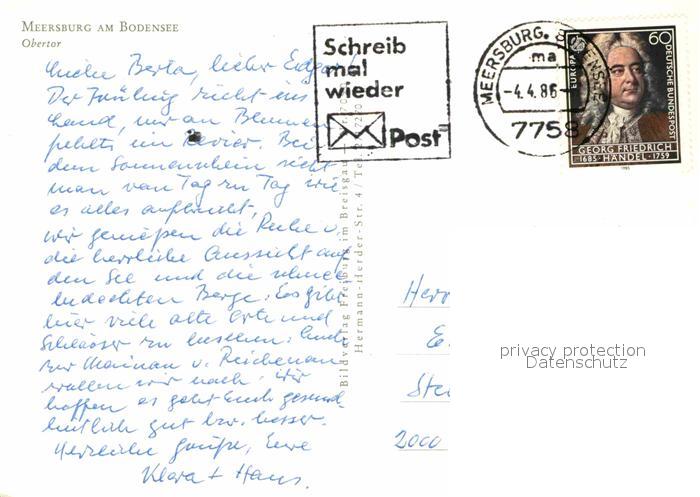 MEERSBURG AM BODENSEE
Obertor
Liebe Berta, lieber Edgar!
Der Frühling zieht ins
Land, nur an Blumen
fehlts im Revier. Bei
dem Sonnenschein sieht
man von Tag zu Tag wie
es alles aufbricht,
wir genießen die Ruhe u.
die herrliche Aussicht auf
den See und die schnee
bedeckten Berge. Es gibt
hier viele alte Orte und
Schlösser zu besehen. Auch
zur Mainau u. Reichenau
wollen wir noch. Wir
hoffen es geht Euch gesund-
heitlich gut bzw. besser.
Herzliche Grüße, Eure
Klara + Hans.
Bildverlag Freiburg im Breisgau
Hermann-Herder-Str. 4 / Tel.
Schreib
mal
wieder
Post
MEERSBURG,
ma
-4.4.86
7758
EUROPA
60
DEUTSCHE BUNDESPOST
GEORG FRIEDRICH
1685 HÄNDEL 1759
1985
Herr
E.
Stei
2000
privacy protection
Datenschutz